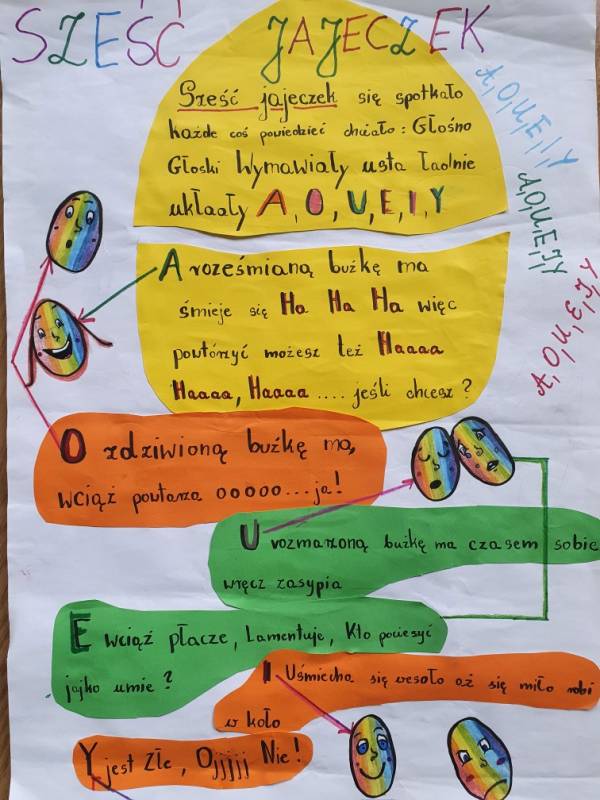 SZEŚĆ JAJECZEK
Sześć jajeczek się spotkało
każde coś powiedzieć chciało: Głośno
Głoski Wymawiały usta ładnie
układały A, O, U, E, I, Y
A, O, U, E, I, Y
A, O, U, E, I, Y
A, O, U, E, I, Y
A roześmianą buźkę ma
śmieje się Ha Ha Ha więc
powtórzyć możesz też Haaaa
Haaaa, Haaaa .... jeśli chcesz ?
O zdziwioną buźkę ma,
wciąż powtarza ooooo...ja!
U rozmarzoną buźkę ma czasem sobie
wręcz zasypia
E wciąż płacze, Lamentuje, Kto pocieszyć
jajko umie ?
I Uśmiecha się wesoło aż się miło robi
w koło
Y jest Złe, Ojjjjj Nie!